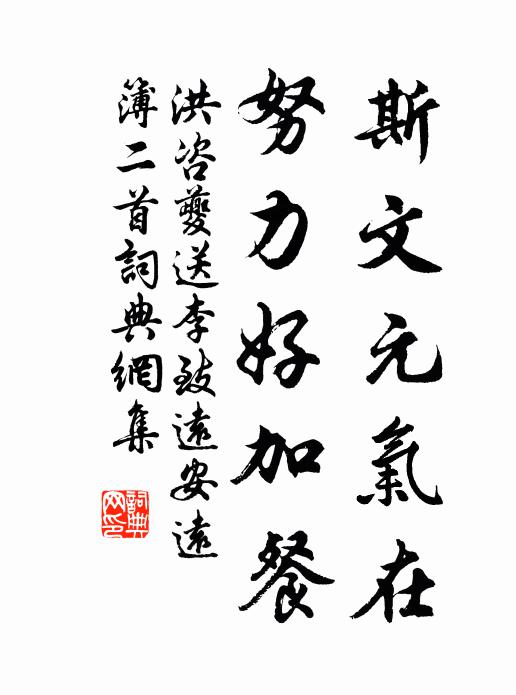 斯文元氣在
努力好加餐
洪咨夔送李致遠安遠
簿二首詞典網集
詞典网印